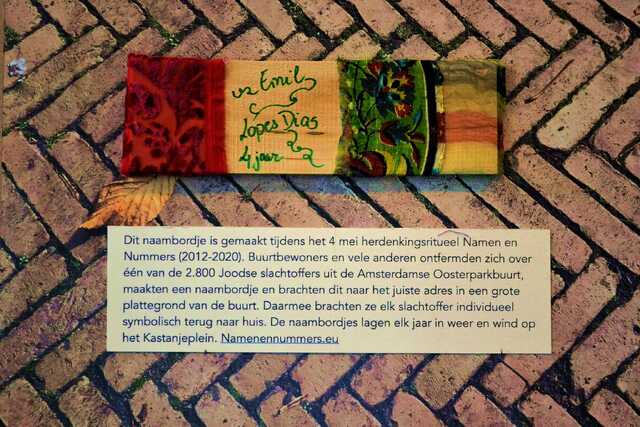 Emil
Lopes Dias
4 jaar
Dit naambordje is gemaakt tijdens het 4 mei herdenkingsritueel Namen en
Nummers (2012-2020). Buurtbewoners en vele anderen ontfermden zich over
één van de 2.800 Joodse slachtoffers uit de Amsterdamse Oosterparkbuurt,
maakten een naambordje en brachten dit naar het juiste adres in een grote
plattegrond van de buurt. Daarmee brachten ze elk slachtoffer individueel
symbolisch terug naar huis. De naambordjes lagen elk jaar in weer en wind op
het Kastanjeplein. Namenennummers.eu